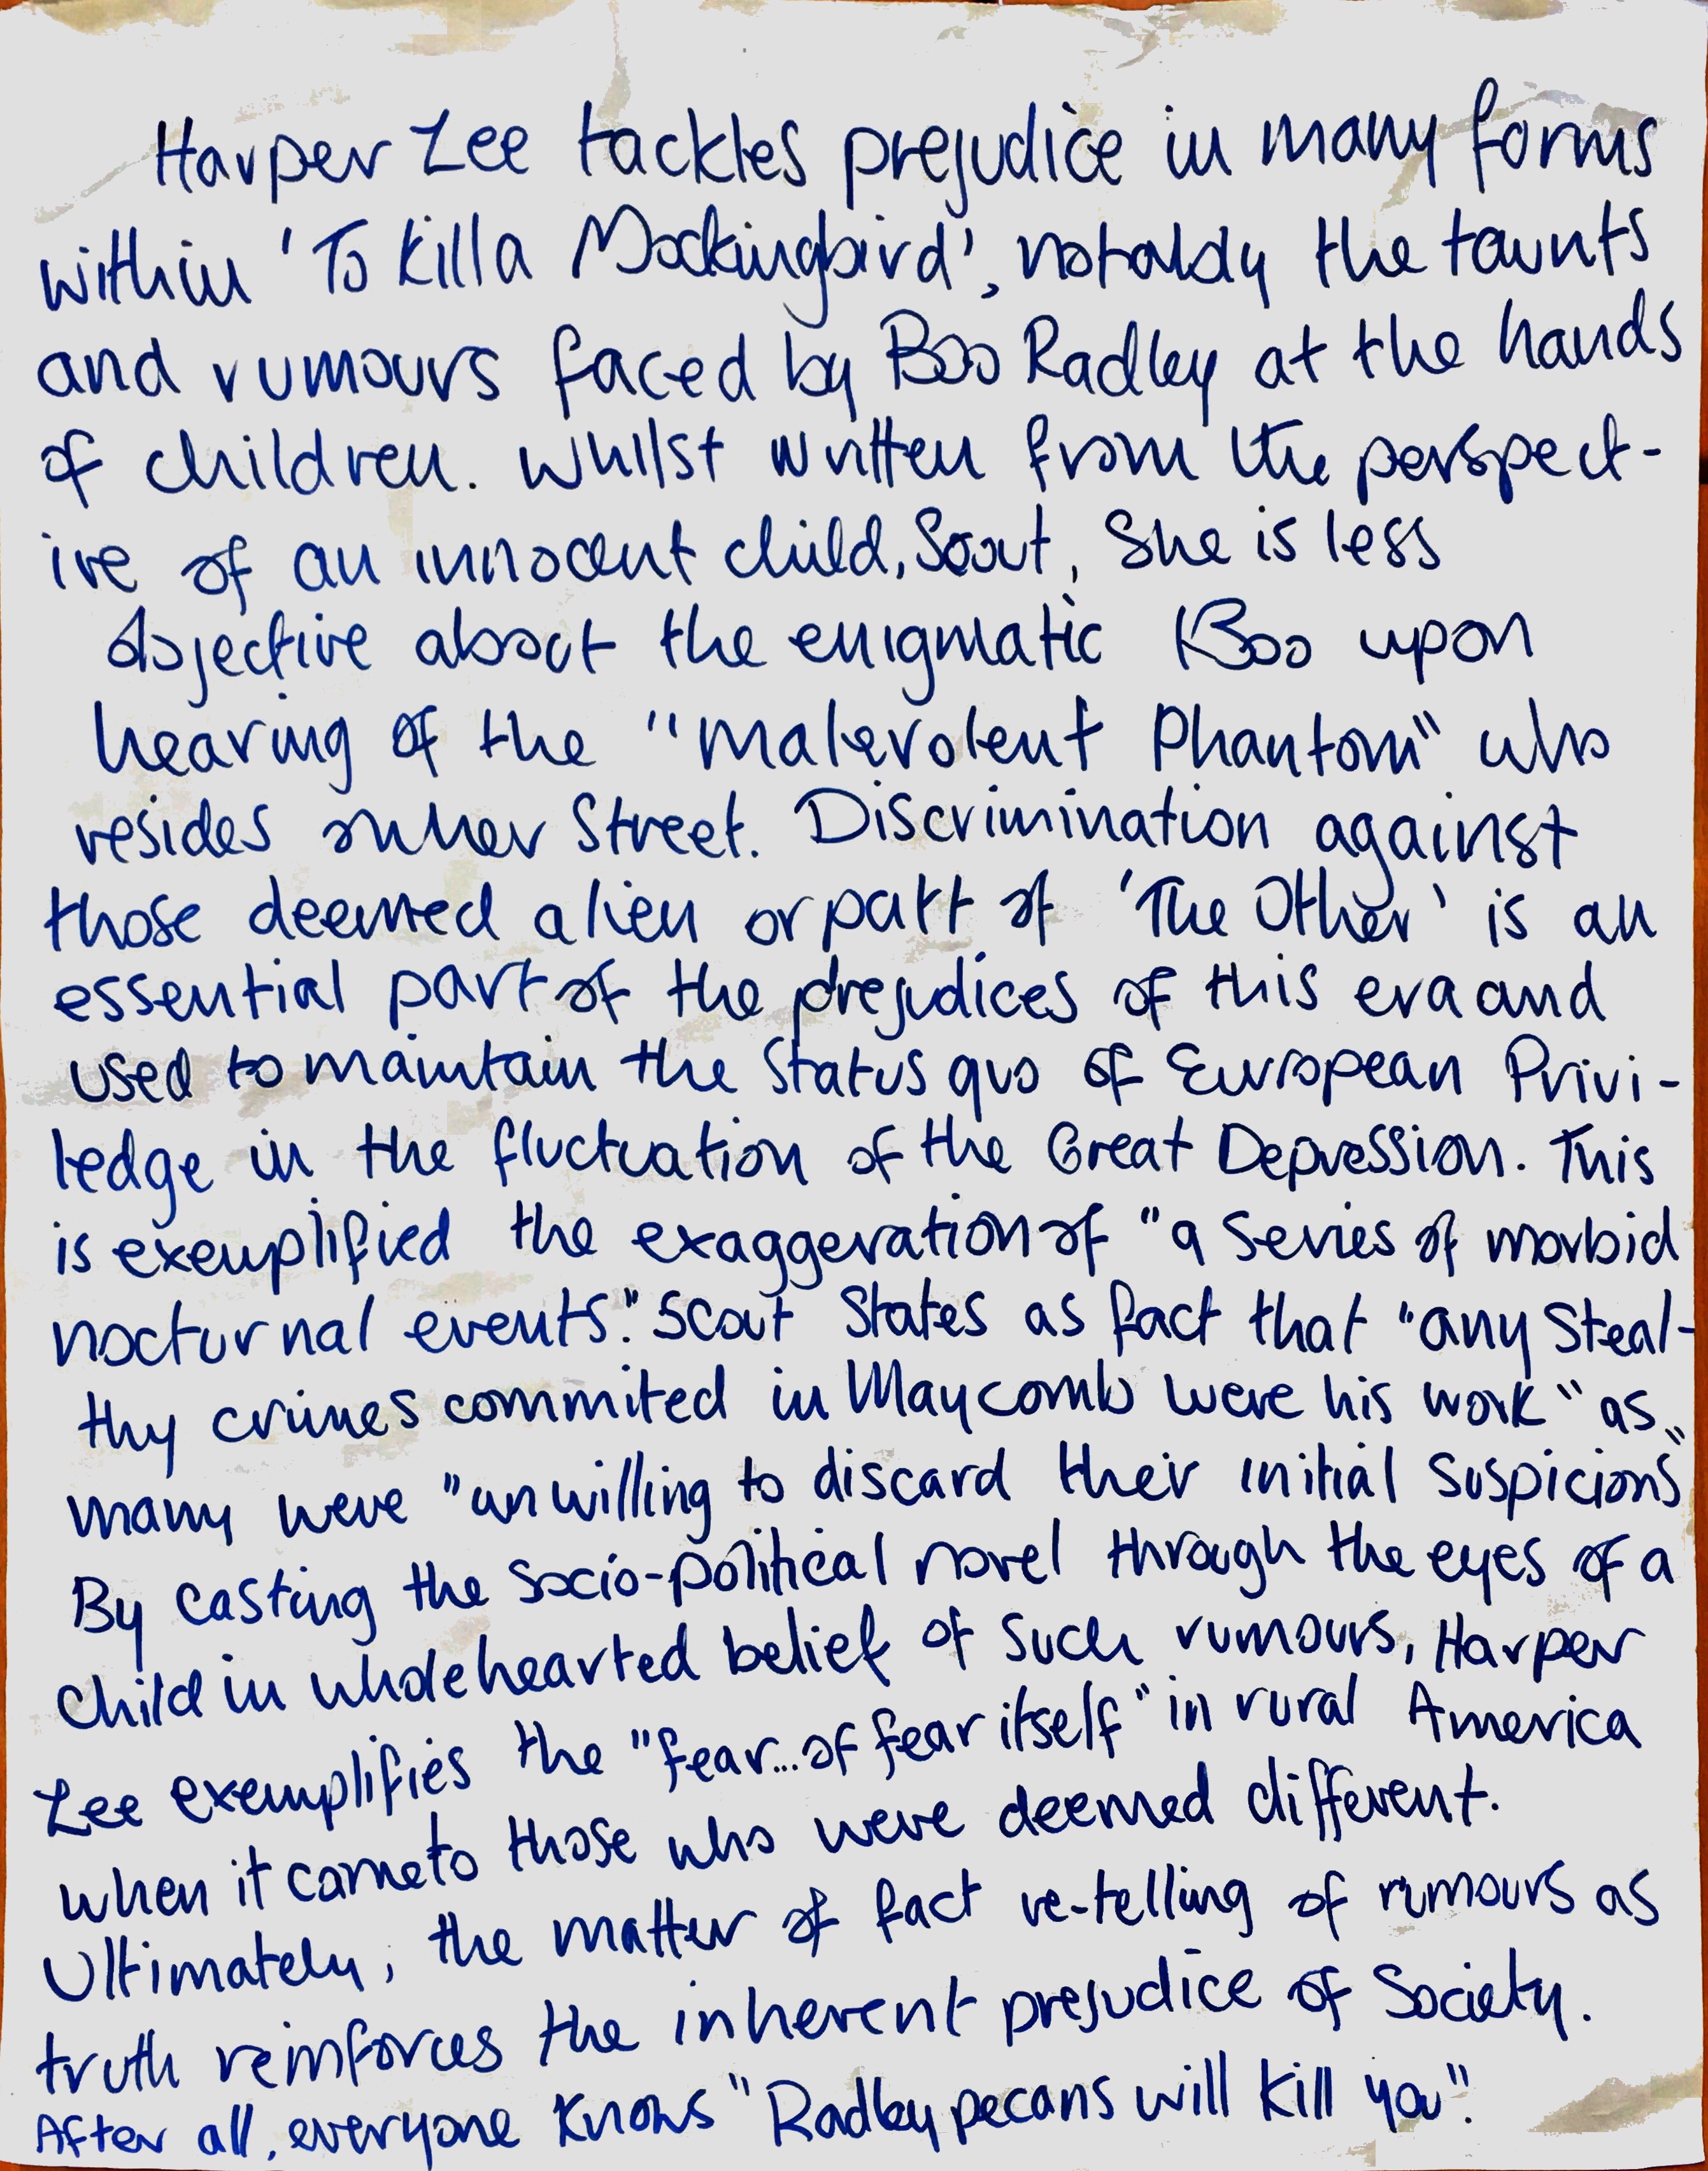 Harper Lee tackles prejudice in many forms
within 'To Kill a Mockingbird', notably the taunts
and rumours faced by Boo Radley at the hands
of children. Whilst written from the perspect-
ive of an innocent child, Scout, She is less
objective about the enigmatic Boo upon
hearing of the "malevolent Phantom" who
resides on her Street. Discrimination against
those deemed alien or part of 'The Other' is an
essential part of the prejudices of this era and
used to maintain the status quo of European Privi-
ledge in the fluctuation of the Great Depression. This
is exemplified the exaggeration of "a series of morbid
nocturnal events." Scout States as fact that "any Steal-
thy crimes commited in Maycomb were his work" as
many were "unwilling to discard their initial suspicions"
By casting the socio-political novel through the eyes of a
child in wholehearted belief of such rumours, Harper
Lee exemplifies the "fear...of fear itself" in rural America
when it came to those who were deemed different.
Ultimately, the matter of fact re-telling of rumours as
truth reinforces the inherent prejudice of Society.
After all, everyone knows "Radley pecans will kill you".